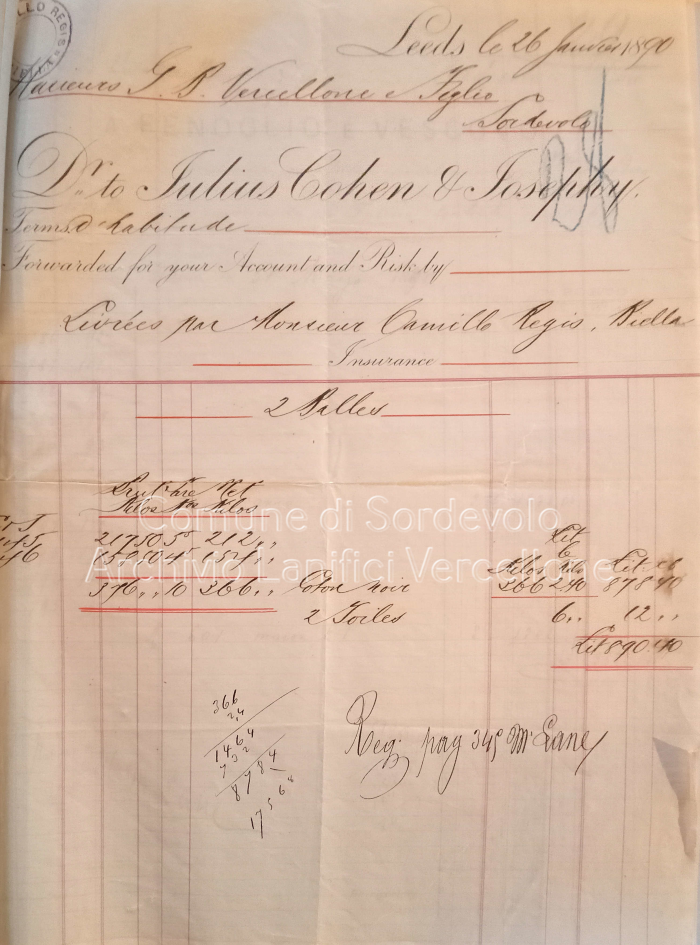 LLO REGIS
Leeds le 26 Janvier 1890
Messieurs G. B. Vercellone e Figlio
Sordevolo
Dr. to Julius Cohen & Josephy.
Terms d'habitude
Forwarded for your Account and Risk by
Livrées par Monsieur Camillo Regis, Biella
Insurance
2 Balles
Brut Tare Net
Kilos Kos Kilos
217 50 5 50 212 ,,
Lit
Kilos Kilo Lit cs
376 ,, 10 366 ,, Coton noir 366 2.40 878 40
2 Toiles 6 ,, 12 ,,
Lit 890.40
Comune di Sordevolo
Archivio Lanifici Vercellone
366
2,4
1464
732
8784
Reg. pag 345 Mr Lane